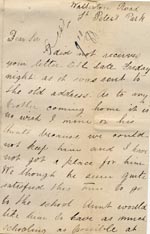 Walterton Road
St Peters Park
Dear Sir
I did not receive
your letter till late Friday
night as it was sent to
the old address. As to any
coming home it is
no wish I mine or his
Aunts because we could
not keep him and I have
not got a place for him.
We thought he seem quite
satisfied this time to go
to the school Aunt would
like him to have as much
schooling as possible at